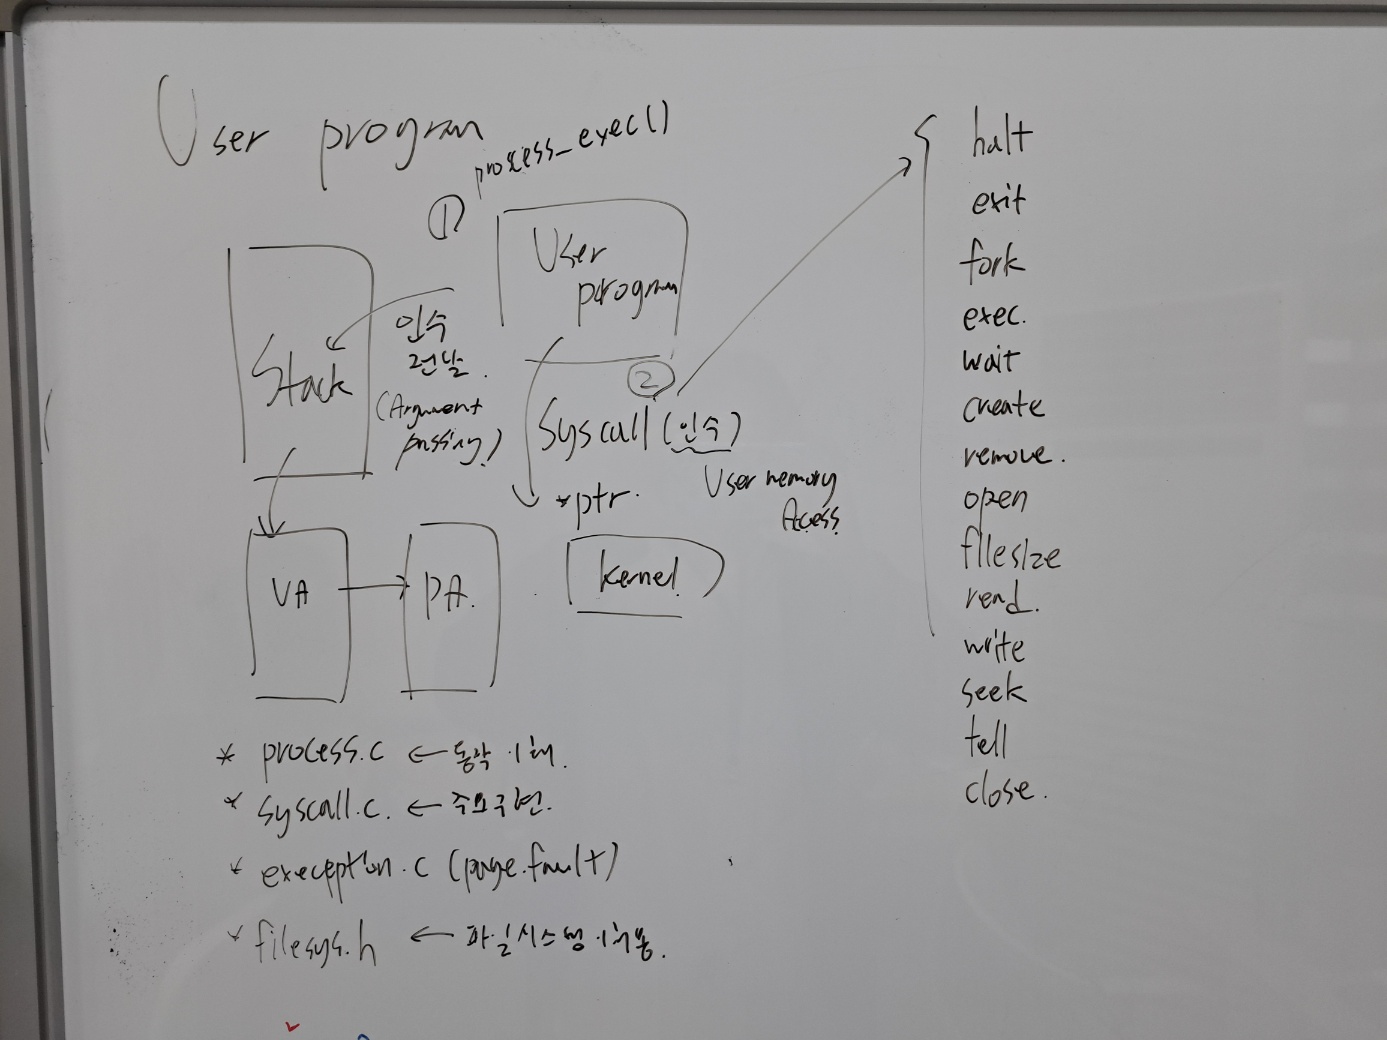 User program
process_exec()
①
User
program
Stack
인수
전달.
(Argument
passing)
②
Syscall (인수)
*ptr.
User memory
Acess
VA
PA.
kernel
* process.c ← 동작 이해.
* syscall.c. ← 주요구현.
* exeception.c (page.fault)
* filesys.h ← 파일시스템 이해용.
halt
exit
fork
exec.
wait
create
remove.
open
filesize
read.
write
seek
tell
close.